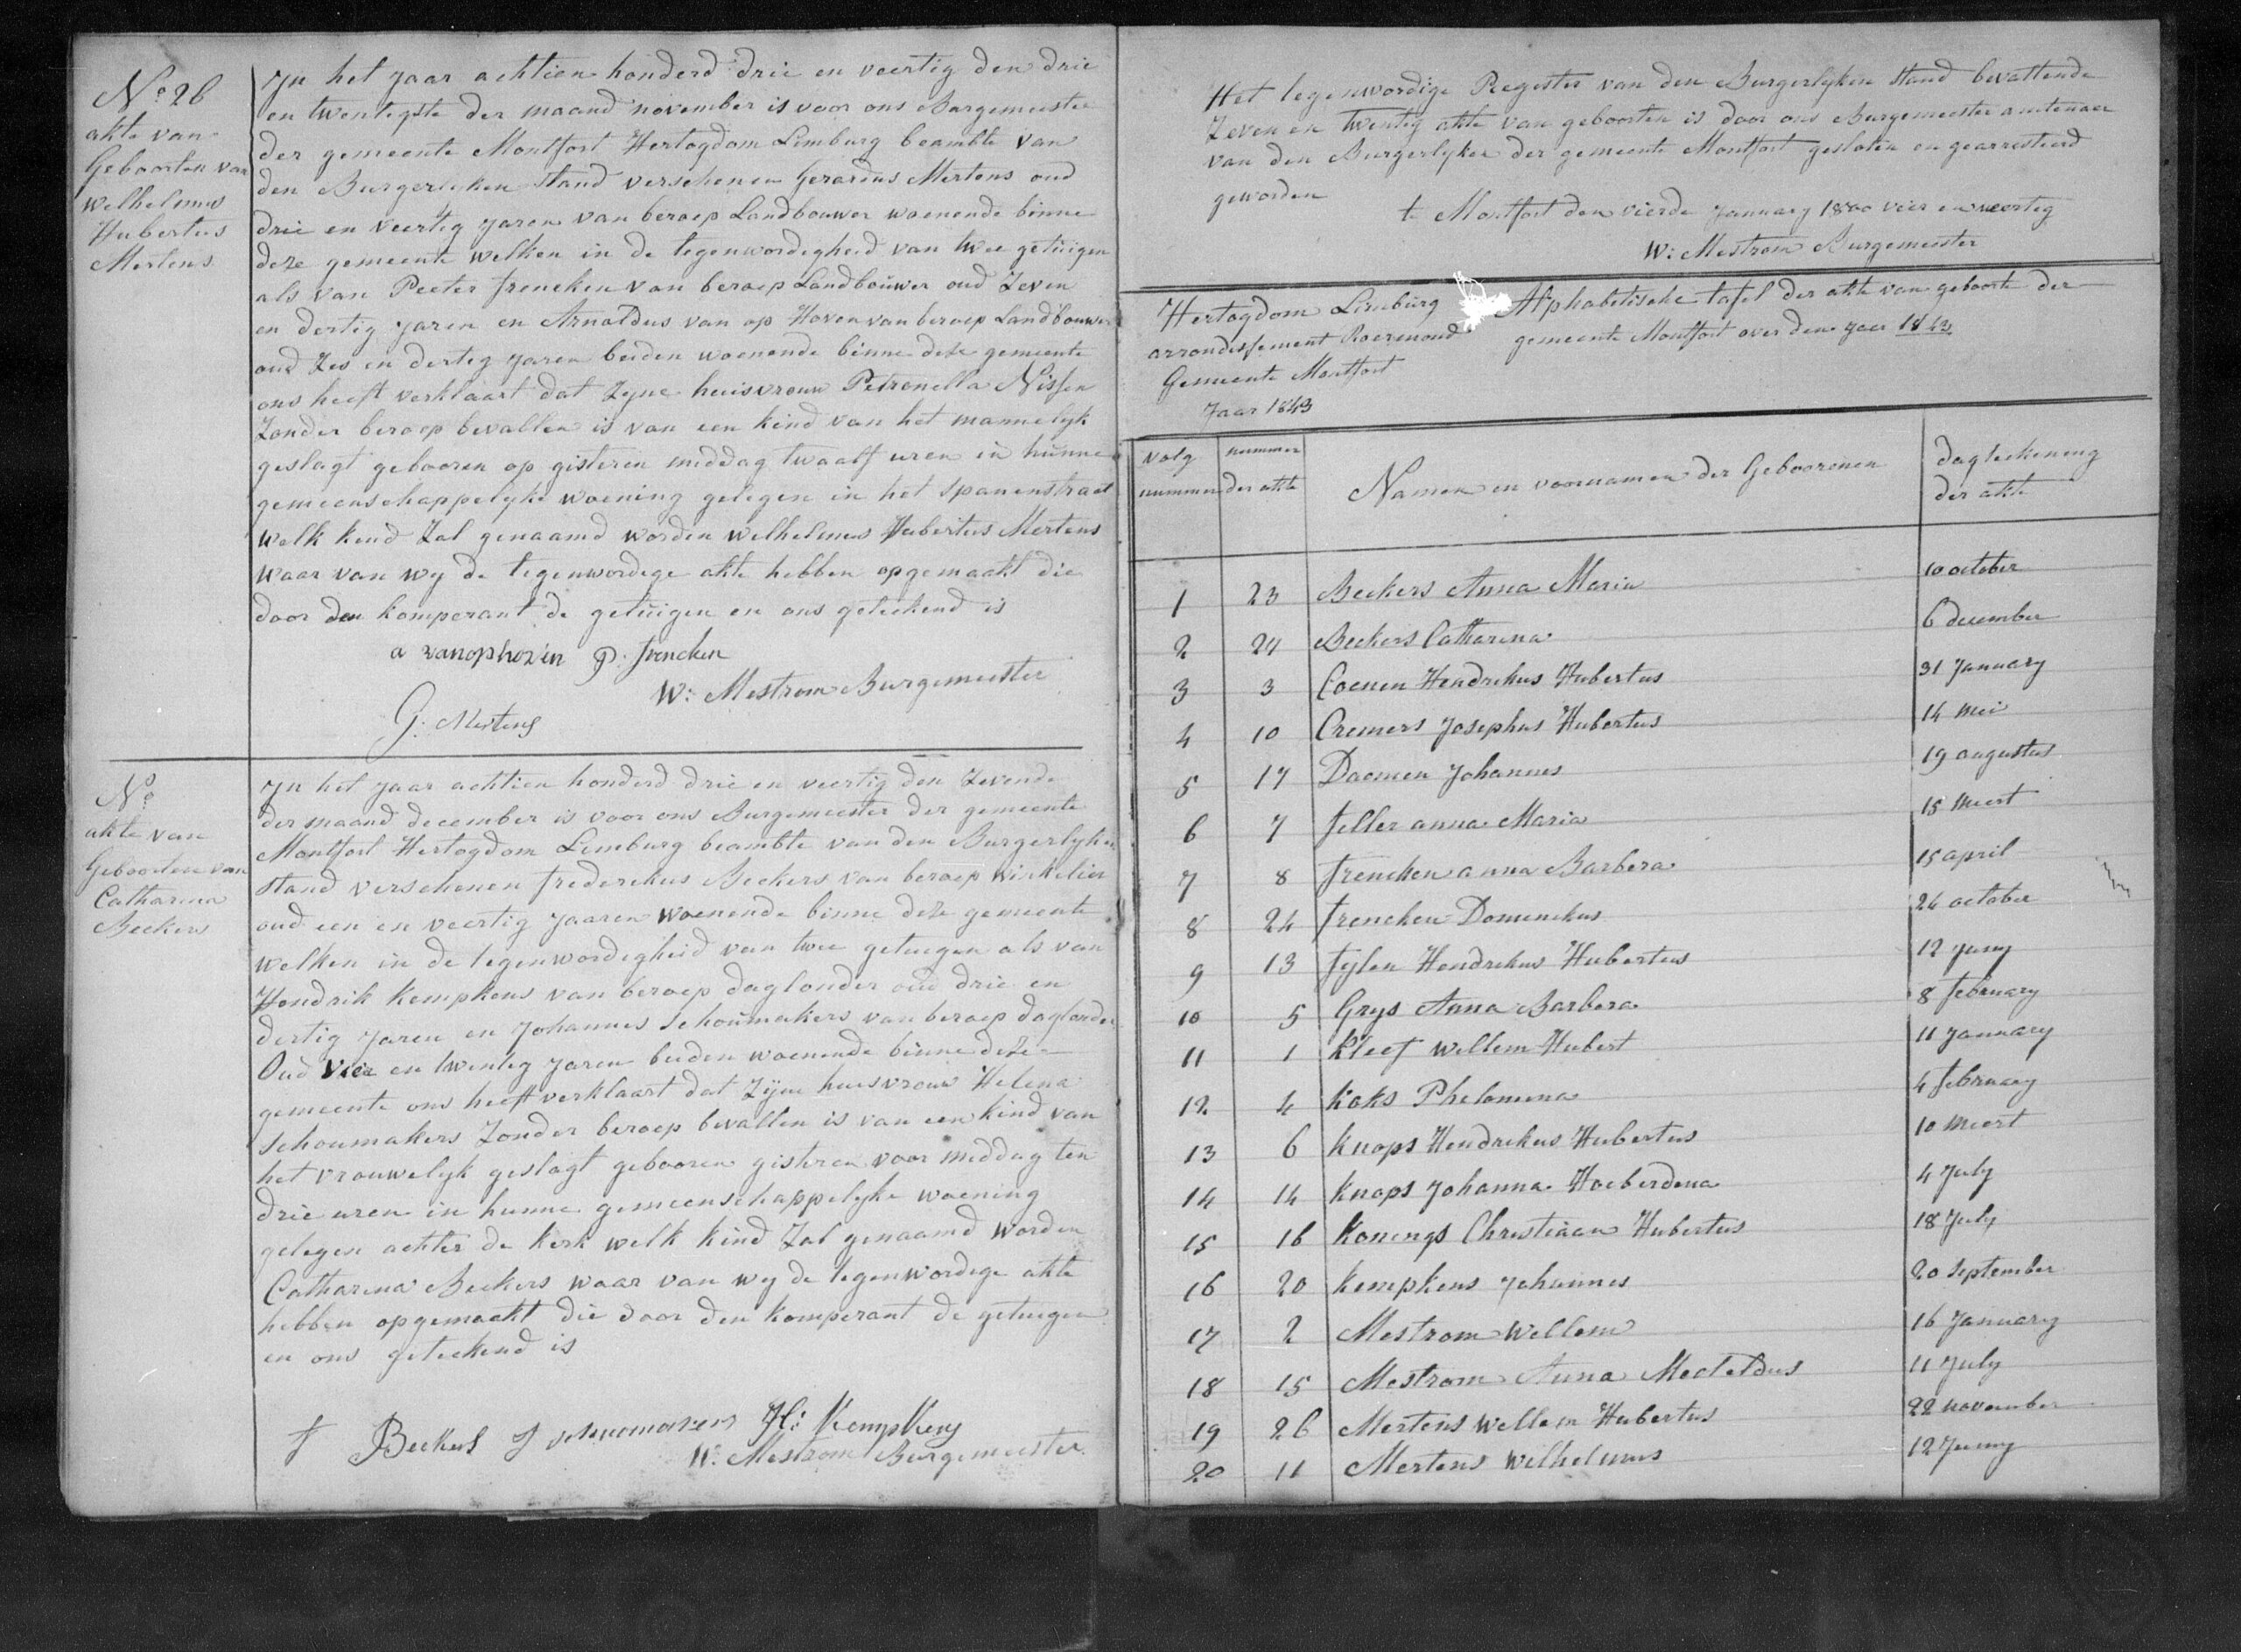 No 26
akte van
Geboorten van
Welhelmus
Hubertus
Mertens
In het jaar achtien honderd drie en veertig den drie
en twentigste der maand november is voor ons Burgemeester
der gemeente Montfort Hertogdom Limburg beambte van
den Burgerlyken stand verschenen Gerardus Mertens oud
drie en veertig jaren van beroep Landbouwer woenende binne
deze gemeente welken in de tegenwordegheid van twee getuigen
als van Peeter frencken van beroep Landbouwer oud Zeven
en dertig jaren en Arnoldus van op Hoven van beroep Landbouwer
oud Zes en derteg jaren beiden woenende binne deze gemeente
ons heeft verklaart dat Zyne huisvrouw Petronella Nissen
Zonder beroep bevallen is van een kind van het mannelyk
geslagt gebooren op gisteren middag twaalf uren in hunne
gemeenschappelyke woening gelegen in het spanenstraet
welk kend Zal genaamd worden Welhelmus Hubertus Mertens
waar van wy de tegenwordege akte hebben opgemaakt die
door den komperant de getuigen en ons geteekend is
a vanophoven P. frencken
W: Mestrom Burgemeester
G. Mertens
No
akte van
Geboorten van
Catharina
Beckers
In het jaar achtien honderd drie en veertig den Zevende
der maand december is voor ons Burgemeester der gemeente
Montfort Hertogdom Limburg beambte van den Burgerlyken
stand verschenen frederekus Beckers van beroep winkelier
oud een en veertig jaaren woenende binne deze gemeente
welken in de tegenwordegheid van twee getuegen als van
Hendrik Kempkens van beroep daglonder oud drie en
dertig jaren en Johannes Schoumakers van beroep daglonder
Oud vier en twenteg jaren beiden woenende binne deze
gemeente ons heeft verklaart dat Zijne huesvrouw Helena
Schoumakers Zonder beroep bevallen is van een kind van
het vrouwelyk geslagt gebooren gisteren voor middag ten
drie uren in hunne gemeenschappelyke woening
gelegen achter de kerk welk kind Zal genaamd worden
Catharina Beckers waar van wy de tegenwordege akte
hebben opgemaakt die door den komperant de getuegen
en ons geteekend is
f Beckers J schoumakers H: Kempkens
W: Mestrom Burgemeester
Het tegenwordige Regester van den Burgerlyken stand bevattende
Zeven en twenteg akte van geboorten is door ons Burgemeester amtenaer
van den Burgerlyken der gemeente Montfort gesloten en gearresteerd
geworden
te Montfort den vierde January 1800 vier en veerteg
W: Mestrom Burgemeester
Hertogdom Limburg
arrondissement Roermond
Gemeente Montfort
Jaar 1843
Alphabetische tafel der akte van geboorte der
gemeente Montfort over den jaar 1843
volg nummer | nummer der akte | Namen en voornamen der Geboorenen | dagteekening der akte
1 23 Beckers Anna Maria 10 october
2 27 Beckers Catharina 6 december
3 3 Coenen Hendrekus Hubertus 31 January
4 10 Cremers Josephus Hubertus 14 mei
5 17 Daemen Johannes 19 augustus
6 7 feller anna Maria 15 meert
7 8 frencken anna Barbera 15 april
8 24 frencken Domenekus 26 october
9 13 fylen Hendrekus Hubertus 12 juny
10 5 Grys Anna Barbera 8 february
11 1 Kleef Willem Hubert 11 January
12 4 Koks Phelomena 4 february
13 6 Knops Hendrekus Hubertus 10 meert
14 14 Knops Johanna Hoeberdena 4 July
15 16 Konengs Chrestiaan Hubertus 18 July
16 20 Kempkens Johannes 20 September
17 2 Mestrom Wellem 16 January
18 15 Mestrom Anna Mecteldus 11 July
19 26 Mertens Wellem Hubertus 22 november
20 11 Mertens Wilhelmus 12 Juny